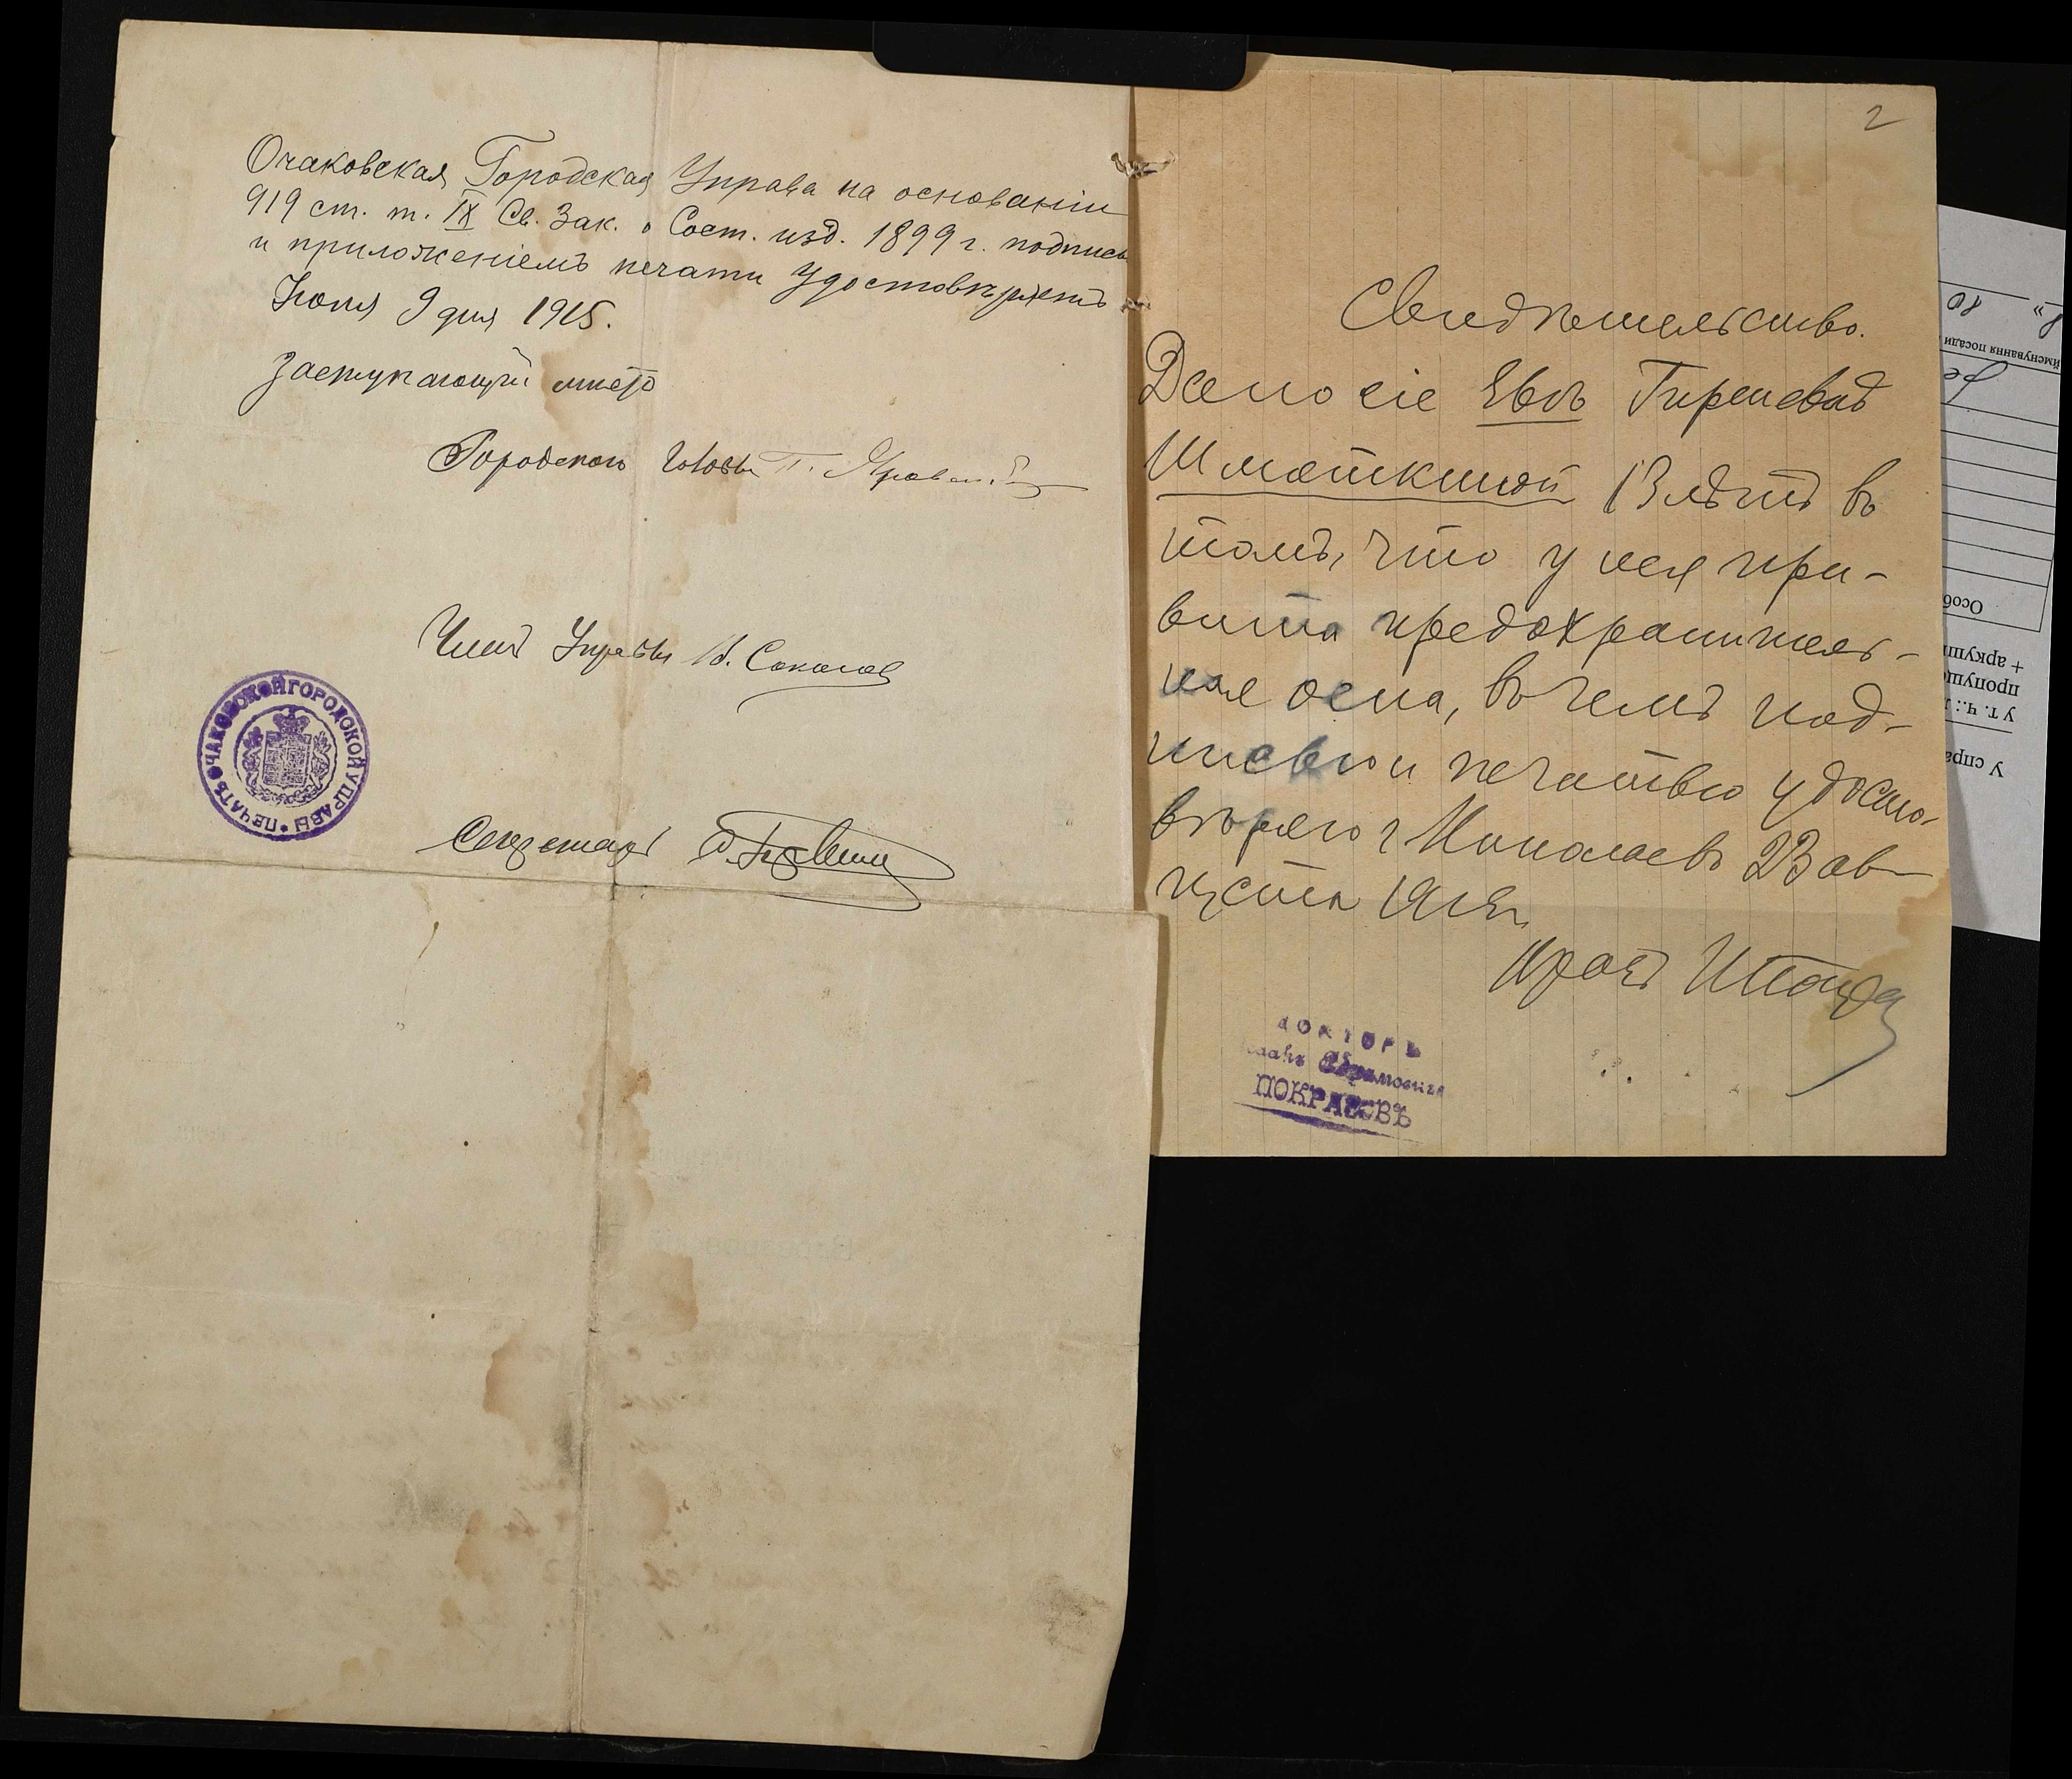 Очаковская Городская Управа на основаніи
919 ст. т. IX Св. Зак. о Сост. изд. 1899 г. подписью
и приложеніемъ печати удостовѣряетъ
Іюня 9 дня 1915.
Заступающій мѣсто
Городского Головы
Членъ Управы В. Соколов
ПЕЧАТЬ ОЧАКОВСКОЙ ГОРОДСКОЙ УПРАВЫ
Секретарь
2
Свидѣтельство.
Дано сіе Евѣ Гиршевой
Шмоткиной 13 лѣтъ въ
томъ, что у нея при-
вита предохранитель-
ная оспа, въ чемъ под-
писью и печатью удосто-
вѣряю г Николаевъ 23 ав-
густа 1915 г.
Врачъ
ДОКТОРЪ
ПОКРАСОВЪ
йменування посади
Особ
+ аркуші
пропущ
У спра